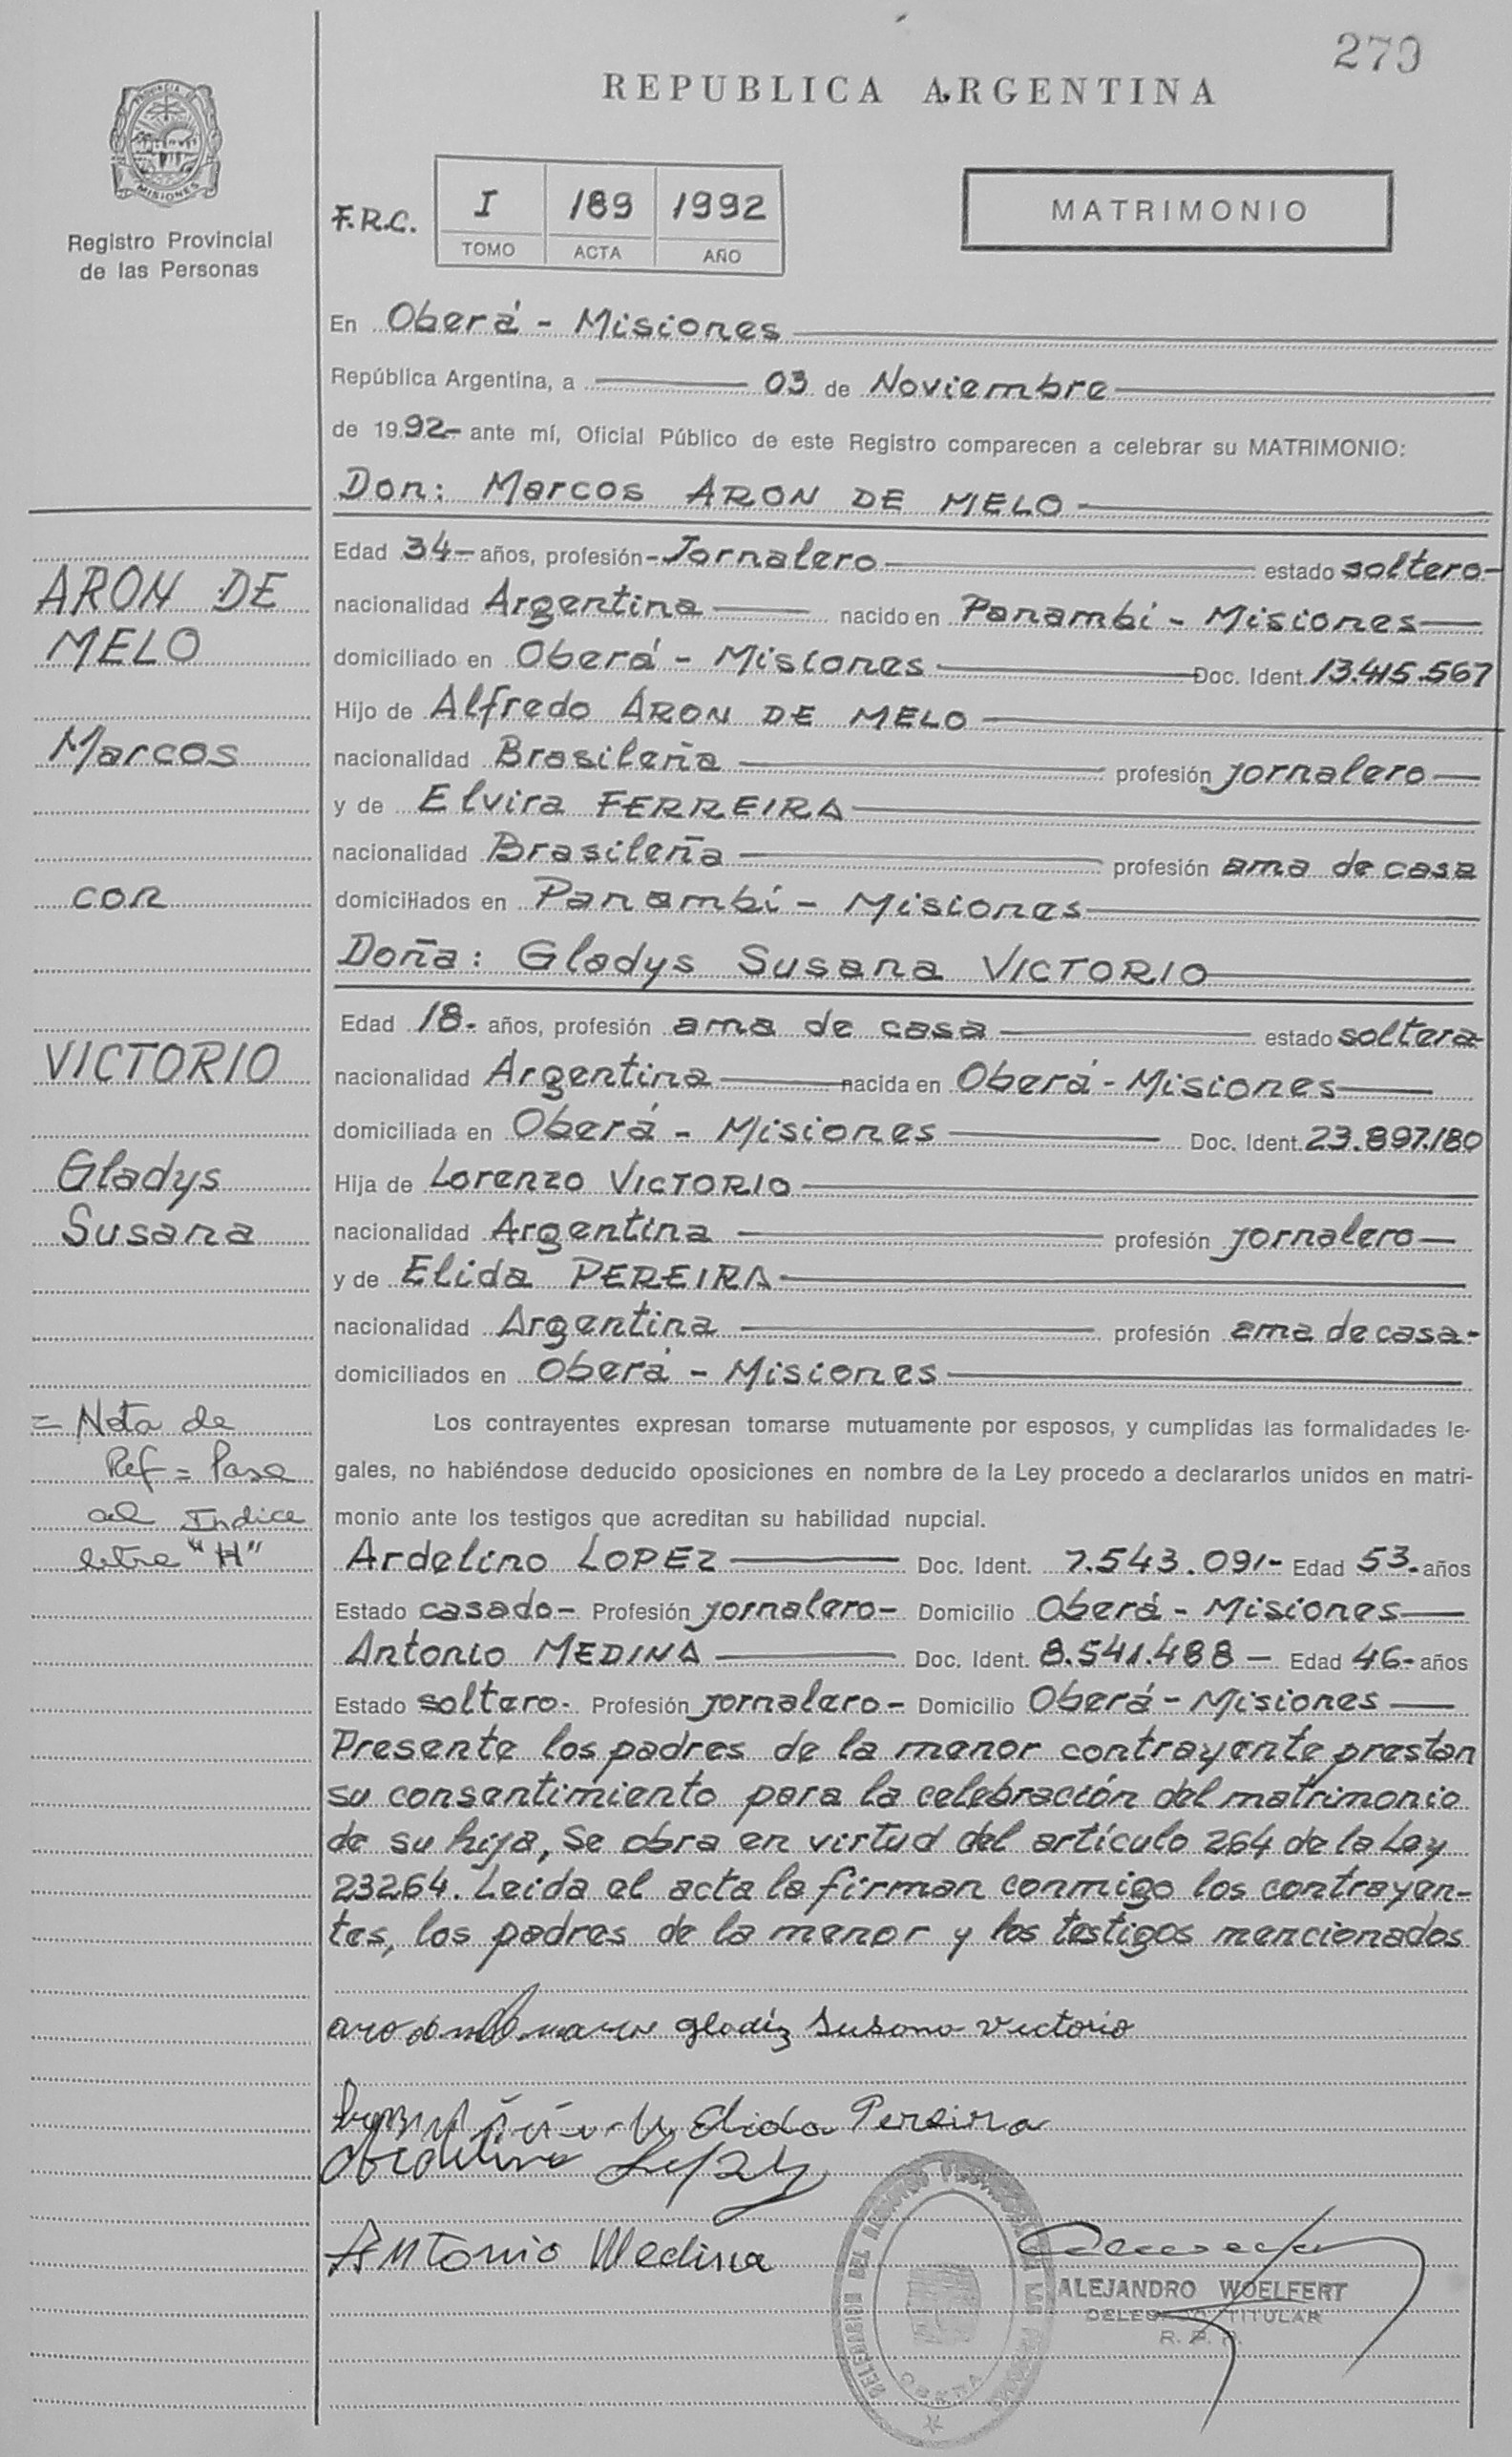 279
REPUBLICA ARGENTINA
MISIONES
Registro Provincial
de las Personas
F.R.C.
I 189 1992
TOMO ACTA AÑO
MATRIMONIO
En Oberá - Misiones
República Argentina, a 03 de Noviembre
de 1992- ante mí, Oficial Público de este Registro comparecen a celebrar su MATRIMONIO:
Don: Marcos ARON DE MELO
Edad 34- años, profesión - Jornalero estado soltero-
nacionalidad Argentina nacido en Panambí - Misiones
domiciliado en Oberá - Misiones Doc. Ident. 13.415.567
Hijo de Alfredo ARON DE MELO
nacionalidad Brasileña profesión jornalero
y de Elvira FERREIRA
nacionalidad Brasileña profesión ama de casa
domiciliados en Panambí - Misiones
Doña: Gladys Susana VICTORIO
Edad 18- años, profesión ama de casa estado soltera
nacionalidad Argentina nacida en Oberá - Misiones
domiciliada en Oberá - Misiones Doc. Ident. 23.897.180
Hija de Lorenzo VICTORIO
nacionalidad Argentina profesión jornalero
y de Elida PEREIRA
nacionalidad Argentina profesión ama de casa-
domiciliados en Oberá - Misiones
Los contrayentes expresan tomarse mutuamente por esposos, y cumplidas las formalidades le-
gales, no habiéndose deducido oposiciones en nombre de la Ley procedo a declararlos unidos en matri-
monio ante los testigos que acreditan su habilidad nupcial.
Ardelino LOPEZ Doc. Ident. 7.543.091- Edad 53- años
Estado casado- Profesión jornalero- Domicilio Oberá - Misiones
Antonio MEDINA Doc. Ident. 8.541.488 - Edad 46- años
Estado soltero- Profesión jornalero- Domicilio Oberá - Misiones
Presente los padres de la menor contrayente prestan
su consentimiento para la celebración del matrimonio
de su hija, Se obra en virtud del artículo 264 de la Ley
23264. Leida el acta la firman conmigo los contrayen-
tes, los padres de la menor y los testigos mencionados
ARON DE
MELO
Marcos
con
VICTORIO
Gladys
Susana
= Nota de
Ref = Pase
al Indice
letra "H"
gladiz Susana Victorio
Elida Pereira
Ardelino Lopez
Antonio Medina
OBERA
ALEJANDRO WOELFERT
DELEGADO TITULAR
R. P. P.